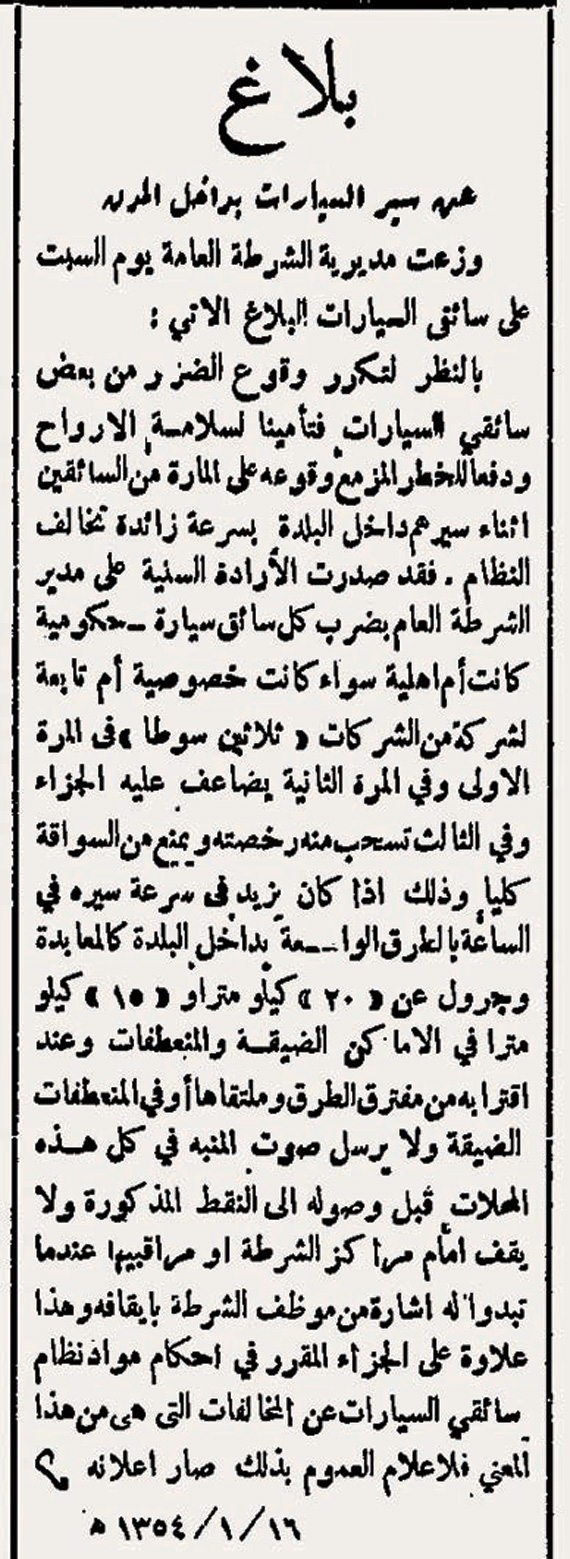 بلاغ
عن سير السيارات بداخل المدن
وزعت مديرية الشرطة العامة يوم السبت
على سائقى السيارات البلاغ الاتي :
بالنظر لتكرر وقوع الضرر من بعض
سائقي السيارات فتأمينا لسلامة الارواح
ودفعا للخطر المزمع وقوعه على المارة من السائقين
اثناء سيرهم داخل البلدة بسرعة زائدة تخالف
النظام . فقد صدرت الأرادة السنية على مدير
الشرطة العام بضرب كل سائق سيارة حكومية
كانت أم اهلية سواء كانت خصوصية أم تابعة
لشركة من الشركات « ثلاثين سوطا » فى المرة
الاولى وفي المرة الثانية يضاعف عليه الجزاء
وفي الثالث تسحب منه رخصته و يمنع من السواقة
كليا وذلك اذا كان يزيد فى سرعة سيره في
الساعة بالطرق الواسعة بداخل البلدة كالمعابدة
وجرول عن « ٢٠ » كيلو مترا و « ١٥ » كيلو
مترا في الاماكن الضيقة والمنعطفات وعند
اقترابه من مفترق الطرق وملتقاها أو في المنعطفات
الضيقة ولا يرسل صوت المنبه في كل هذه
المحلات قبل وصوله الى النقط المذكورة ولا
يقف امام مراكز الشرطة او مراقبيها عندما
تبدوا له اشارة من موظف الشرطة بايقافه وهذا
علاوة على الجزاء المقرر في احكام مواد نظام
سائقي السيارات عن المخالفات التى هى من هذا
المعني فلاعلام العموم بذلك صار اعلانه
١٣٥٤/١/١٦ ه